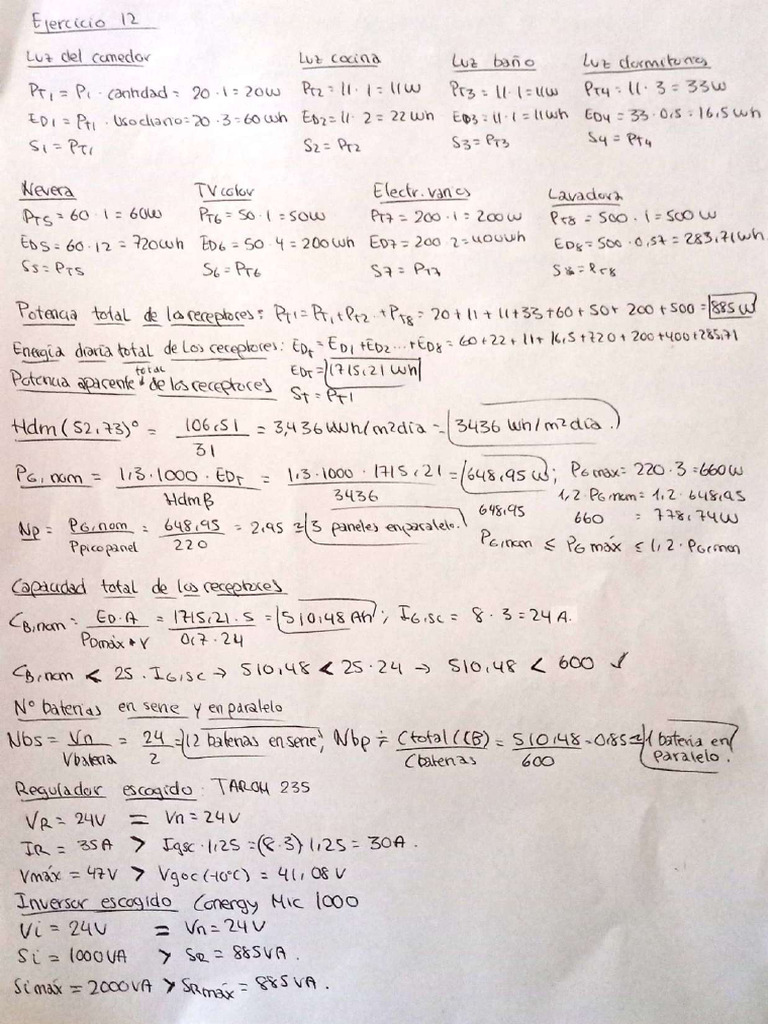 Ejercicio 12
Luz del comedor
PT1 = P1 · cantidad = 20 · 1 = 20W
ED1 = PT1 · Uso diario = 20 · 3 = 60Wh
S1 = PT1
Luz cocina
PT2 = 11 · 1 = 11W
ED2 = 11 · 2 = 22Wh
S2 = PT2
Luz baño
PT3 = 11 · 1 = 11W
ED3 = 11 · 1 = 11Wh
S3 = PT3
Luz dormitorios
PT4 = 11 · 3 = 33W
ED4 = 33 · 0,5 = 16,5Wh
S4 = PT4
Nevera
PT5 = 60 · 1 = 60W
ED5 = 60 · 12 = 720Wh
S5 = PT5
TV color
PT6 = 50 · 1 = 50W
ED6 = 50 · 4 = 200Wh
S6 = PT6
Electr. varios
PT7 = 200 · 1 = 200W
ED7 = 200 · 2 = 400Wh
S7 = PT7
Lavadora
PT8 = 500 · 1 = 500W
ED8 = 500 · 0,57 = 283,71Wh
S8 = PT8
Potencia total de los receptores: PT1 = PT1 + PT2 .. + PT8 = 20 + 11 + 11 + 33 + 60 + 50 + 200 + 500 = 885W
Energía diaria total de los receptores: EDT = ED1 + ED2 ... + ED8 = 60 + 22 + 11 + 16,5 + 720 + 200 + 400 + 285,71
EDT = 1715,21 Wh
Potencia aparente total de los receptores ST = PT1
Hdm(52,73)° = 106,51 / 31 = 3,436 kWh/m²día = 3436 Wh/m²día.
PG,nom = 1,3 · 1000 · EDT / Hdmβ = 1,3 · 1000 · 1715,21 / 3436 = 648,95W; PGmax = 220 · 3 = 660W
1,2 · PGnom = 1,2 · 648,95 = 778,74W
Np = PG,nom / Ppico panel = 648,95 / 220 = 2,95 ≅ 3 paneles en paralelo.
648,95 660
PG,nom ≤ PG máx ≤ 1,2 · PG,nom
Capacidad total de los receptores
CB,nom = ED · A / PDmáx * V = 1715,21 · 5 / 0,7 · 24 = 510,48 Ah; IG,sc = 8 · 3 = 24A.
CB,nom < 25 · IG,sc → 510,48 < 25 · 24 → 510,48 < 600 ✓
Nº baterias en serie y en paralelo
Nbs = Vn / Vbateria = 24 / 2 = 12 baterias en serie; Nbp = Ctotal (CB) / Cbaterias = 510,48 / 600 = 0,85 ≅ 1 bateria en paralelo.
Regulador escogido: TAROM 235
VR = 24V = Vn = 24V
IR = 35A > Igsc · 1,25 = (8 · 3) 1,25 = 30A.
Vmáx = 47V > Vgoc(-10°C) = 41,08V
Inversor escogido Conergy Mic 1000
Vi = 24V = Vn = 24V
Si = 1000VA > SR = 885VA.
Simáx = 2000VA > SRmáx = 885VA.